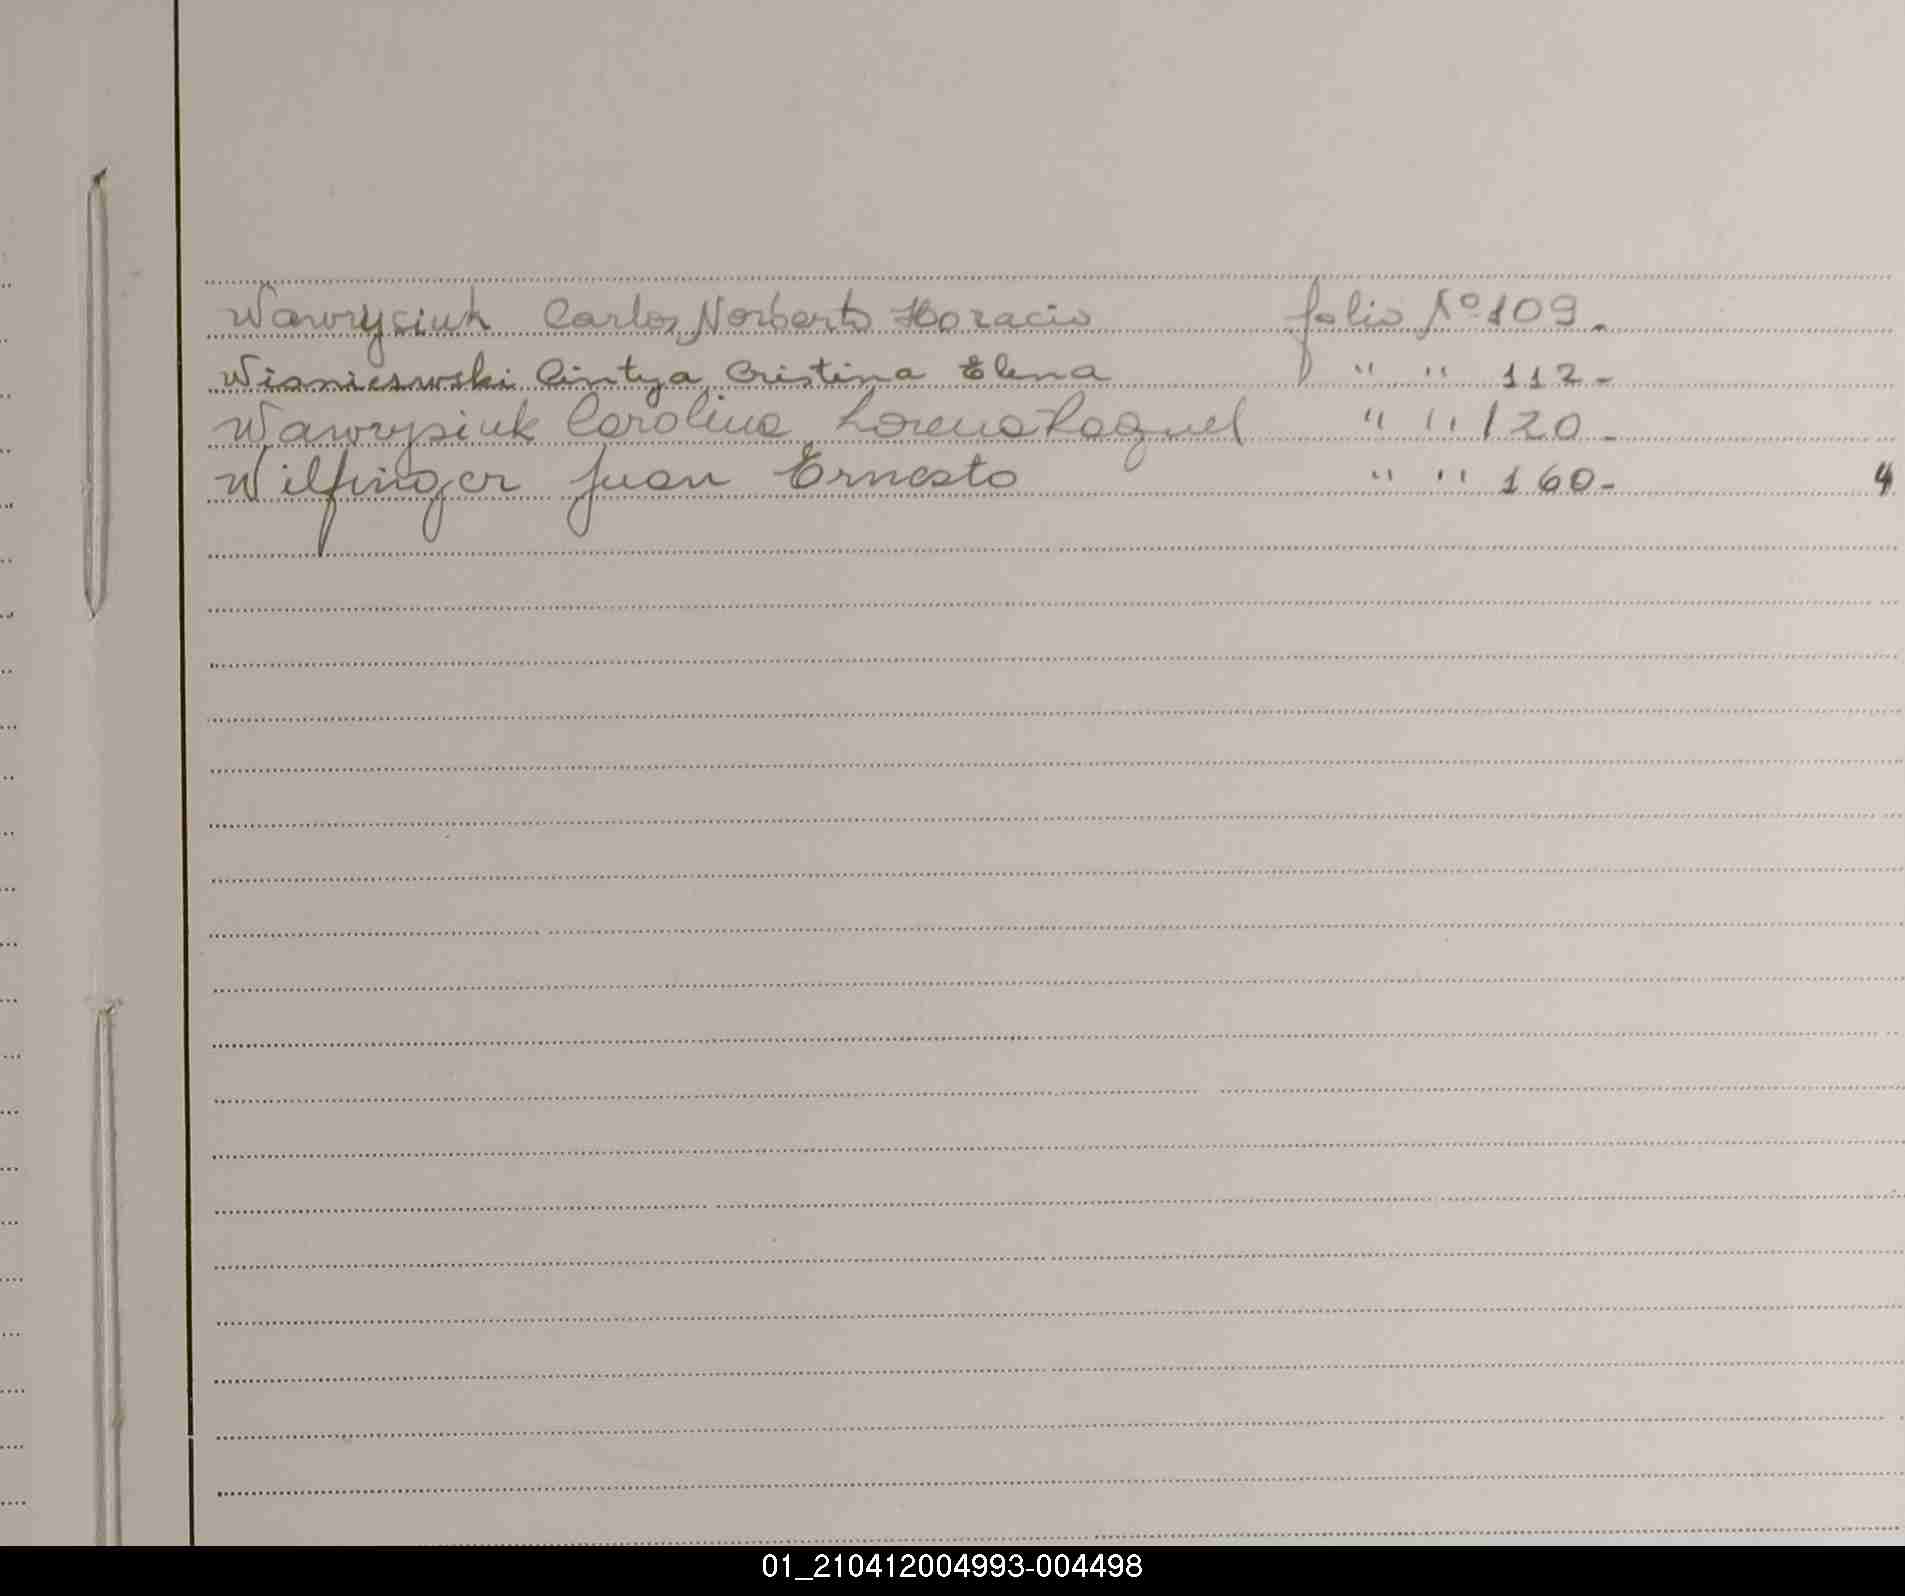 Wawryciuk Carlos Norberto Horacio folio Nº 109.
Wisnieswski Cintya Cristina Elena " " 112-
Wawrysiuk Carolina Lorena Raquel " " 120-
Wilfinger Juan Ernesto " " 160- 4
01_210412004993-004498